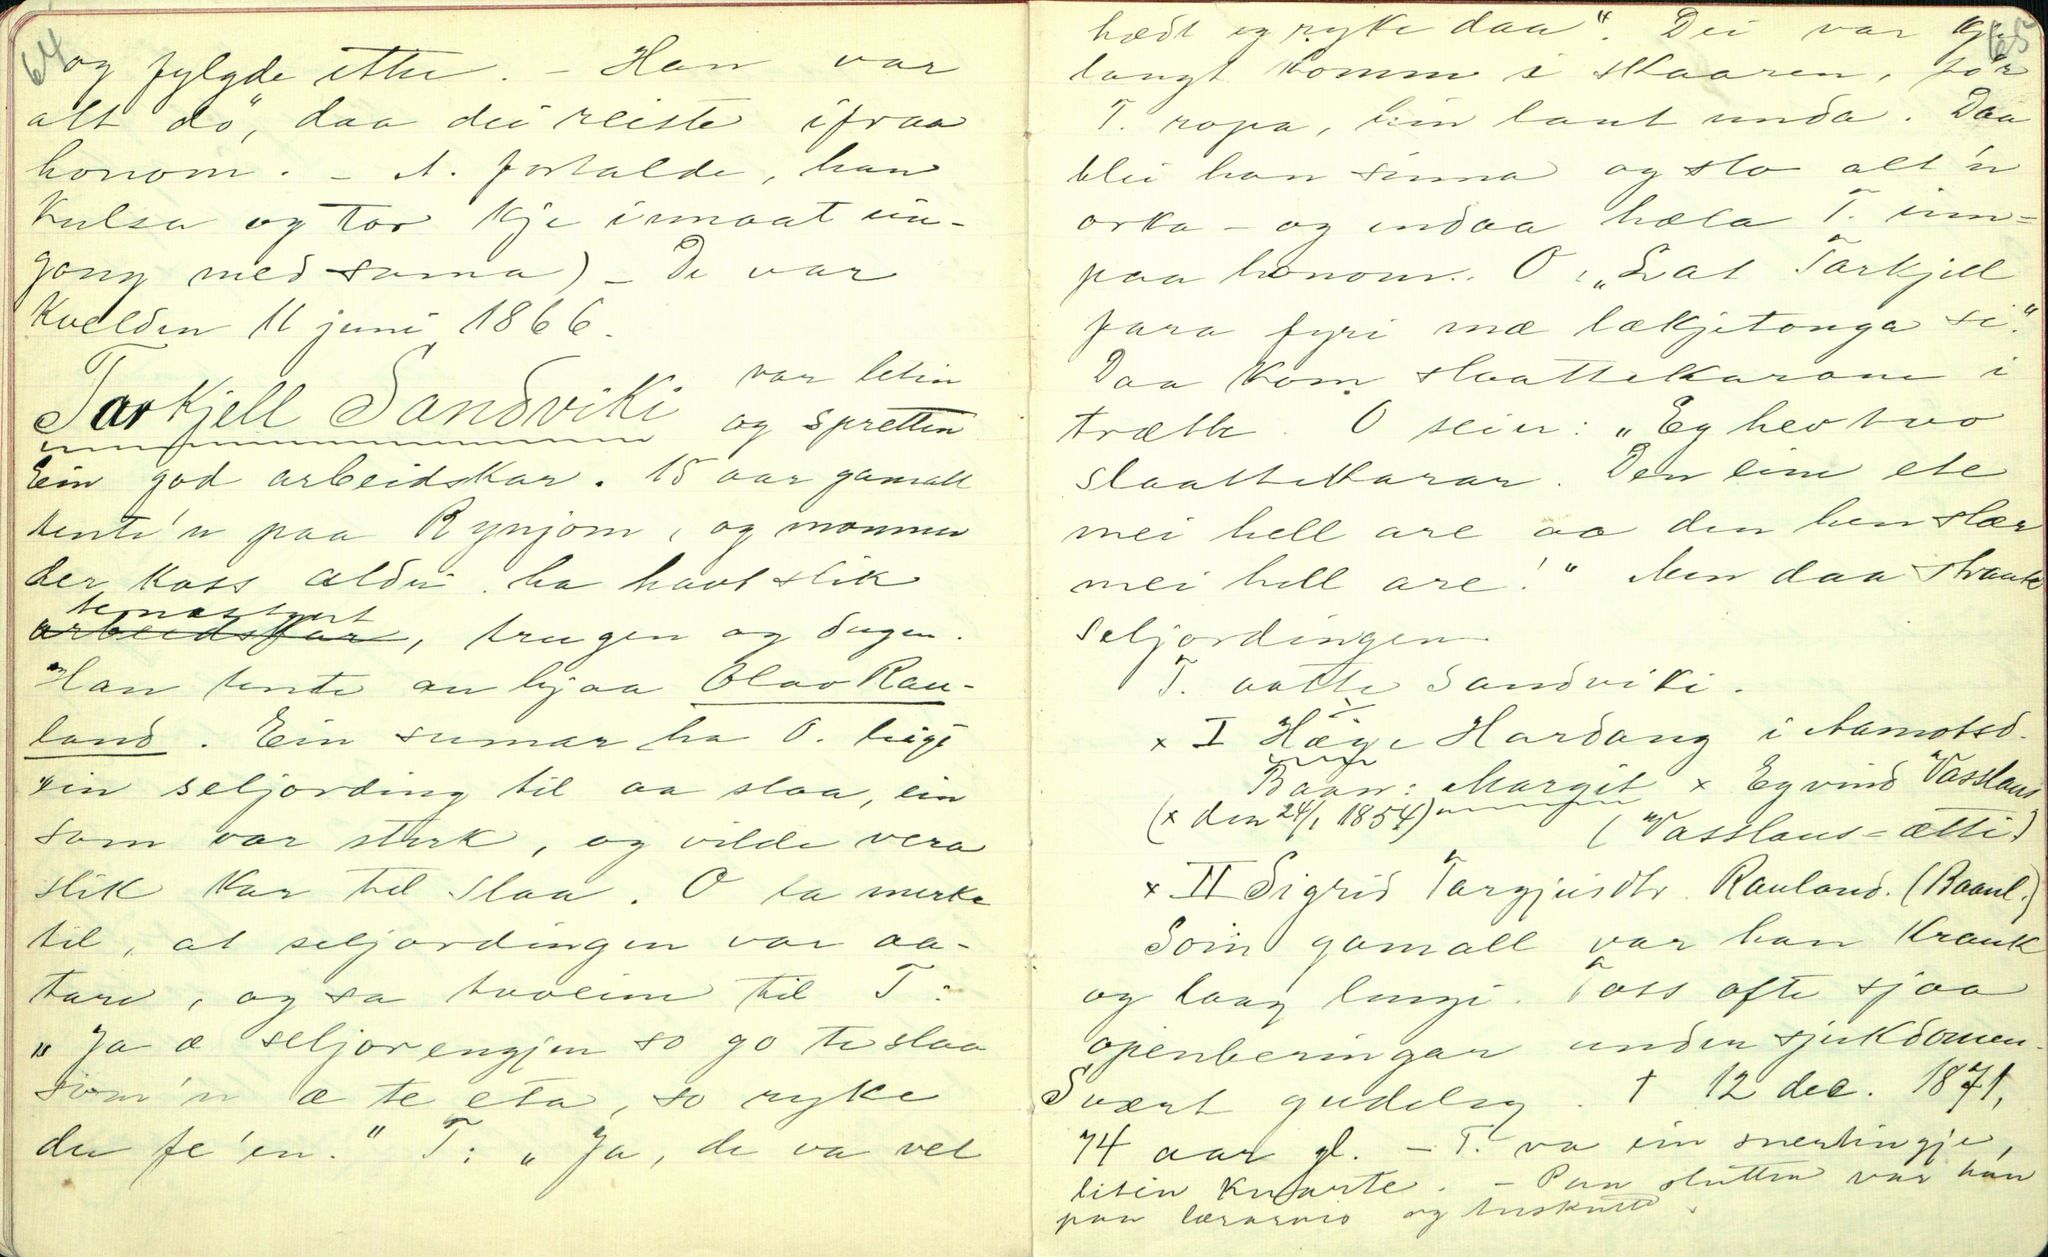 64
og fylgde ette. – Han var
alt dö, daa dei reiste ifraa
honom. – A. fortalde, han
kulsa og tor kje imaat ein-
gong med suma) – De var
kvelden 11 juni 1866.
Tarkjell Sandviki var litin
og spretten
Ein god arbeidskar. 15 aar gamall
tente 'n paa Rynjom, og mannen
der kass aldri ha havt slik
tenastgut
arbeidskar, trugen og dugen.
Han tente au hjaa Olav Rau-
land. Ein sumar ha O. leigt
ein seljording til aa slaa, ein
som var sterk, og vilde vera
slik kar til slaa. O la merke
til, at seljordingen var aa-
tare, og sa tvoeine til T:
"Ja æ seljorengjen so go te slaa
som 'n æ te eta, so ryke
du fe 'en." T: "Ja, de va vel
65
hædt eg ryke daa". Dei var kje
langt komne i skaaren, för
T. ropa, hin laut unda. Daa
blei han sinna og slo alt 'n
orka – og endaa hæla T. inn-
paa honom. O, "Lat Tarkjell
fara fyri mæ lækjetonga si."
Daa kom slaattekarane i
trætte. O seier: "Eg hev tvo
slaattekarar. Den eine ete
mei hell are aa den hen slær
mei hell are!" Men daa strauk
seljordingen
T. aatte Sandviki.
x I Hæge Hardang i Aamotsd.
Baan: Margit x Eyvind Vasslaus
(x den 24/1 1854) (Vasslaus-ætti)
x II Sigrid Targjeisdtr. Rauland. (Baanl.)
Som gamall var han krank
og laag lengi. Tass ofte sjaa
openberingar under sjukdomen.
Svært gudeleg. † 12 dec. 1871,
74 aar gl. – T. va ein snertingje,
litin knarte. – Paa slutten var han
paa lærarvis og